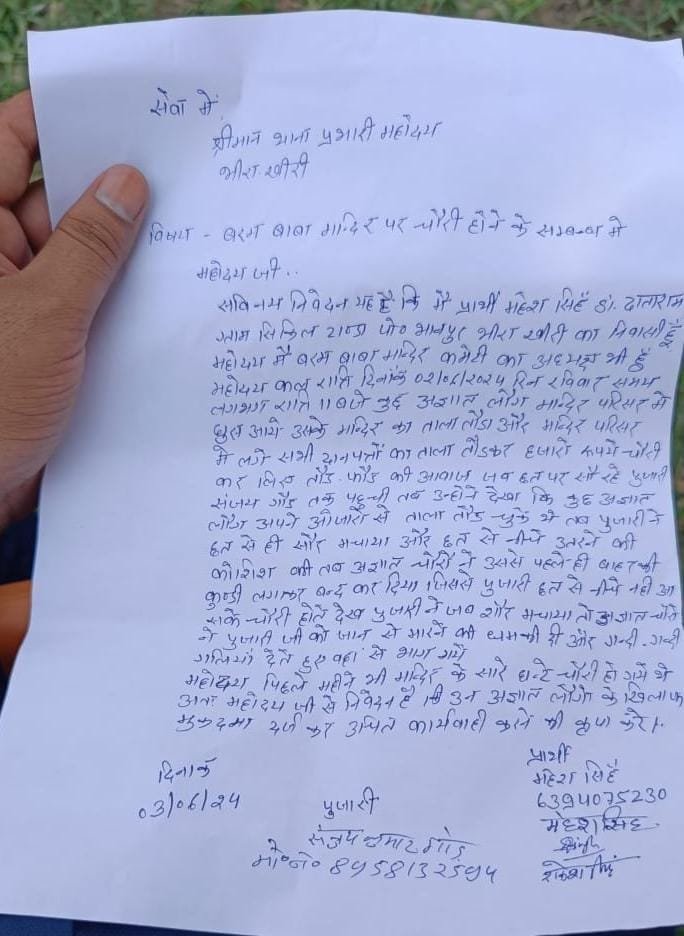 सेवा में,
श्रीमान थाना प्रभारी महोदय
भीरा खीरी
विषय - बरम बाबा मन्दिर पर चोरी होने के सम्बन्ध में
महोदय जी..
सविनय निवेदन यह है कि मैं प्रार्थी महेश सिंह S/. दाताराम
ग्राम सिकिल टान्डा पो० भानपुर भीरा खीरी का निवासी हूँ
महोदय मैं बरम बाबा मन्दिर कमेटी का अध्यक्ष भी हूँ
महोदय कल रात्रि दिनांक 02/06/2024 दिन रविवार समय
लगभग रात्रि 11 बजे कुछ अज्ञात लोग मन्दिर परिसर में
घुस आये उसके मन्दिर का ताला तोडा और मन्दिर परिसर
में लगे सभी दानपत्रों का ताला तोडकर हजारो रूपये चोरी
कर लिए तोड-फोड की आवाज जब छत पर सो रहे पुजारी
संजय गौड तक पहुची तब उन्होने देखा कि कुछ अज्ञात
लोग अपने औजारो से ताला तोड चुके थे तब पुजारी ने
छत से ही सौर मचाया और छत से नीचे उतरने की
कोशिश की तब अज्ञात चोरों ने उससे पहले ही बाहर की
कुन्डी लगाकर बन्द कर दिया जिससे पुजारी छत से नीचे नही आ
सके चोरी होते देख पुजारी ने जब शोर मचाया तो अज्ञात चोरो
ने पुजारी जी को जान से मारने की धमकी दी और गन्दी-गन्दी
गालियां देते हुए वहां से भाग गये
महोदय पिछले महीने भी मन्दिर के सारे घन्टे चोरी हो गये थे
अतः महोदय जी से निवेदन है कि उन अज्ञात लोगो के खिलाफ
मुकदमा दर्ज कर उचित कार्यवाही करने की कृपा करें।
प्रार्थी
दिनांक
महेश सिंह
03/06/24
पुजारी
6394075230
संजय कुमार गोड़
महेश सिंह
मो० न० 8958132594